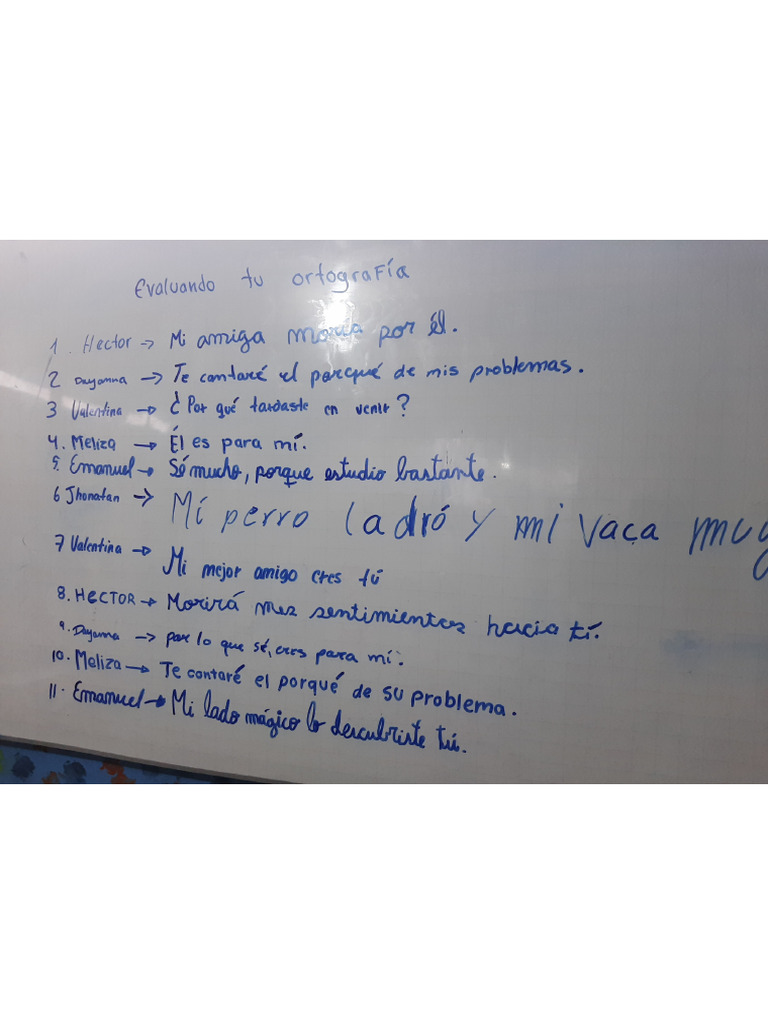 Evaluando tu ortografía
1. Hector -> Mi amiga moría por él.
2 Dayanna -> Te contaré el porqué de mis problemas.
3 Valentina -> ¿Por qué tardaste en venir?
4. Meliza -> Él es para mí.
5. Emanuel -> Sé mucho, porque estudio bastante.
6 Jhonatan -> Mí perro ladró y mi vaca
7 Valentina -> Mi mejor amigo eres tú
8. HECTOR -> Morirá mis sentimientos hacia tí.
9. Dayanna -> por lo que sé, eres para mí.
10. Meliza -> Te contaré el porqué de su problema.
11. Emanuel -> Mi lado mágico lo descubriste tú.